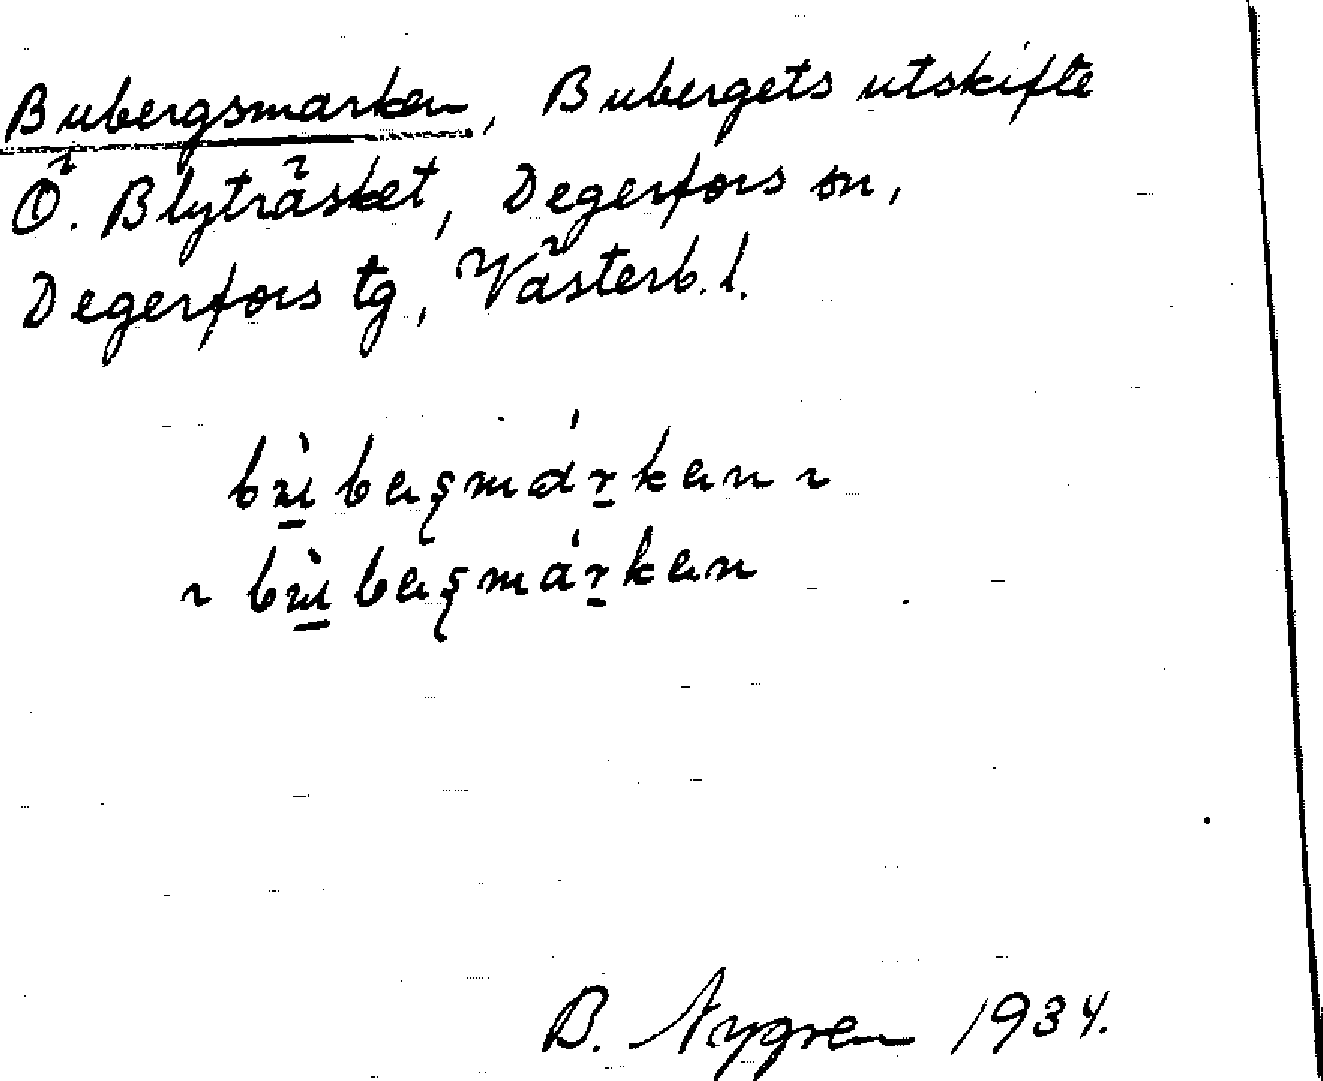 Bubergsmarken, Bubergets utskifte
Ö. Blyträsket, Degerfors sn,
Degerfors tg, Västerb. l.
bu̠̇̀beʂmár̠ken ~
~ bu̠̇̀beʂmár̠ken
B. Nygren 1934.